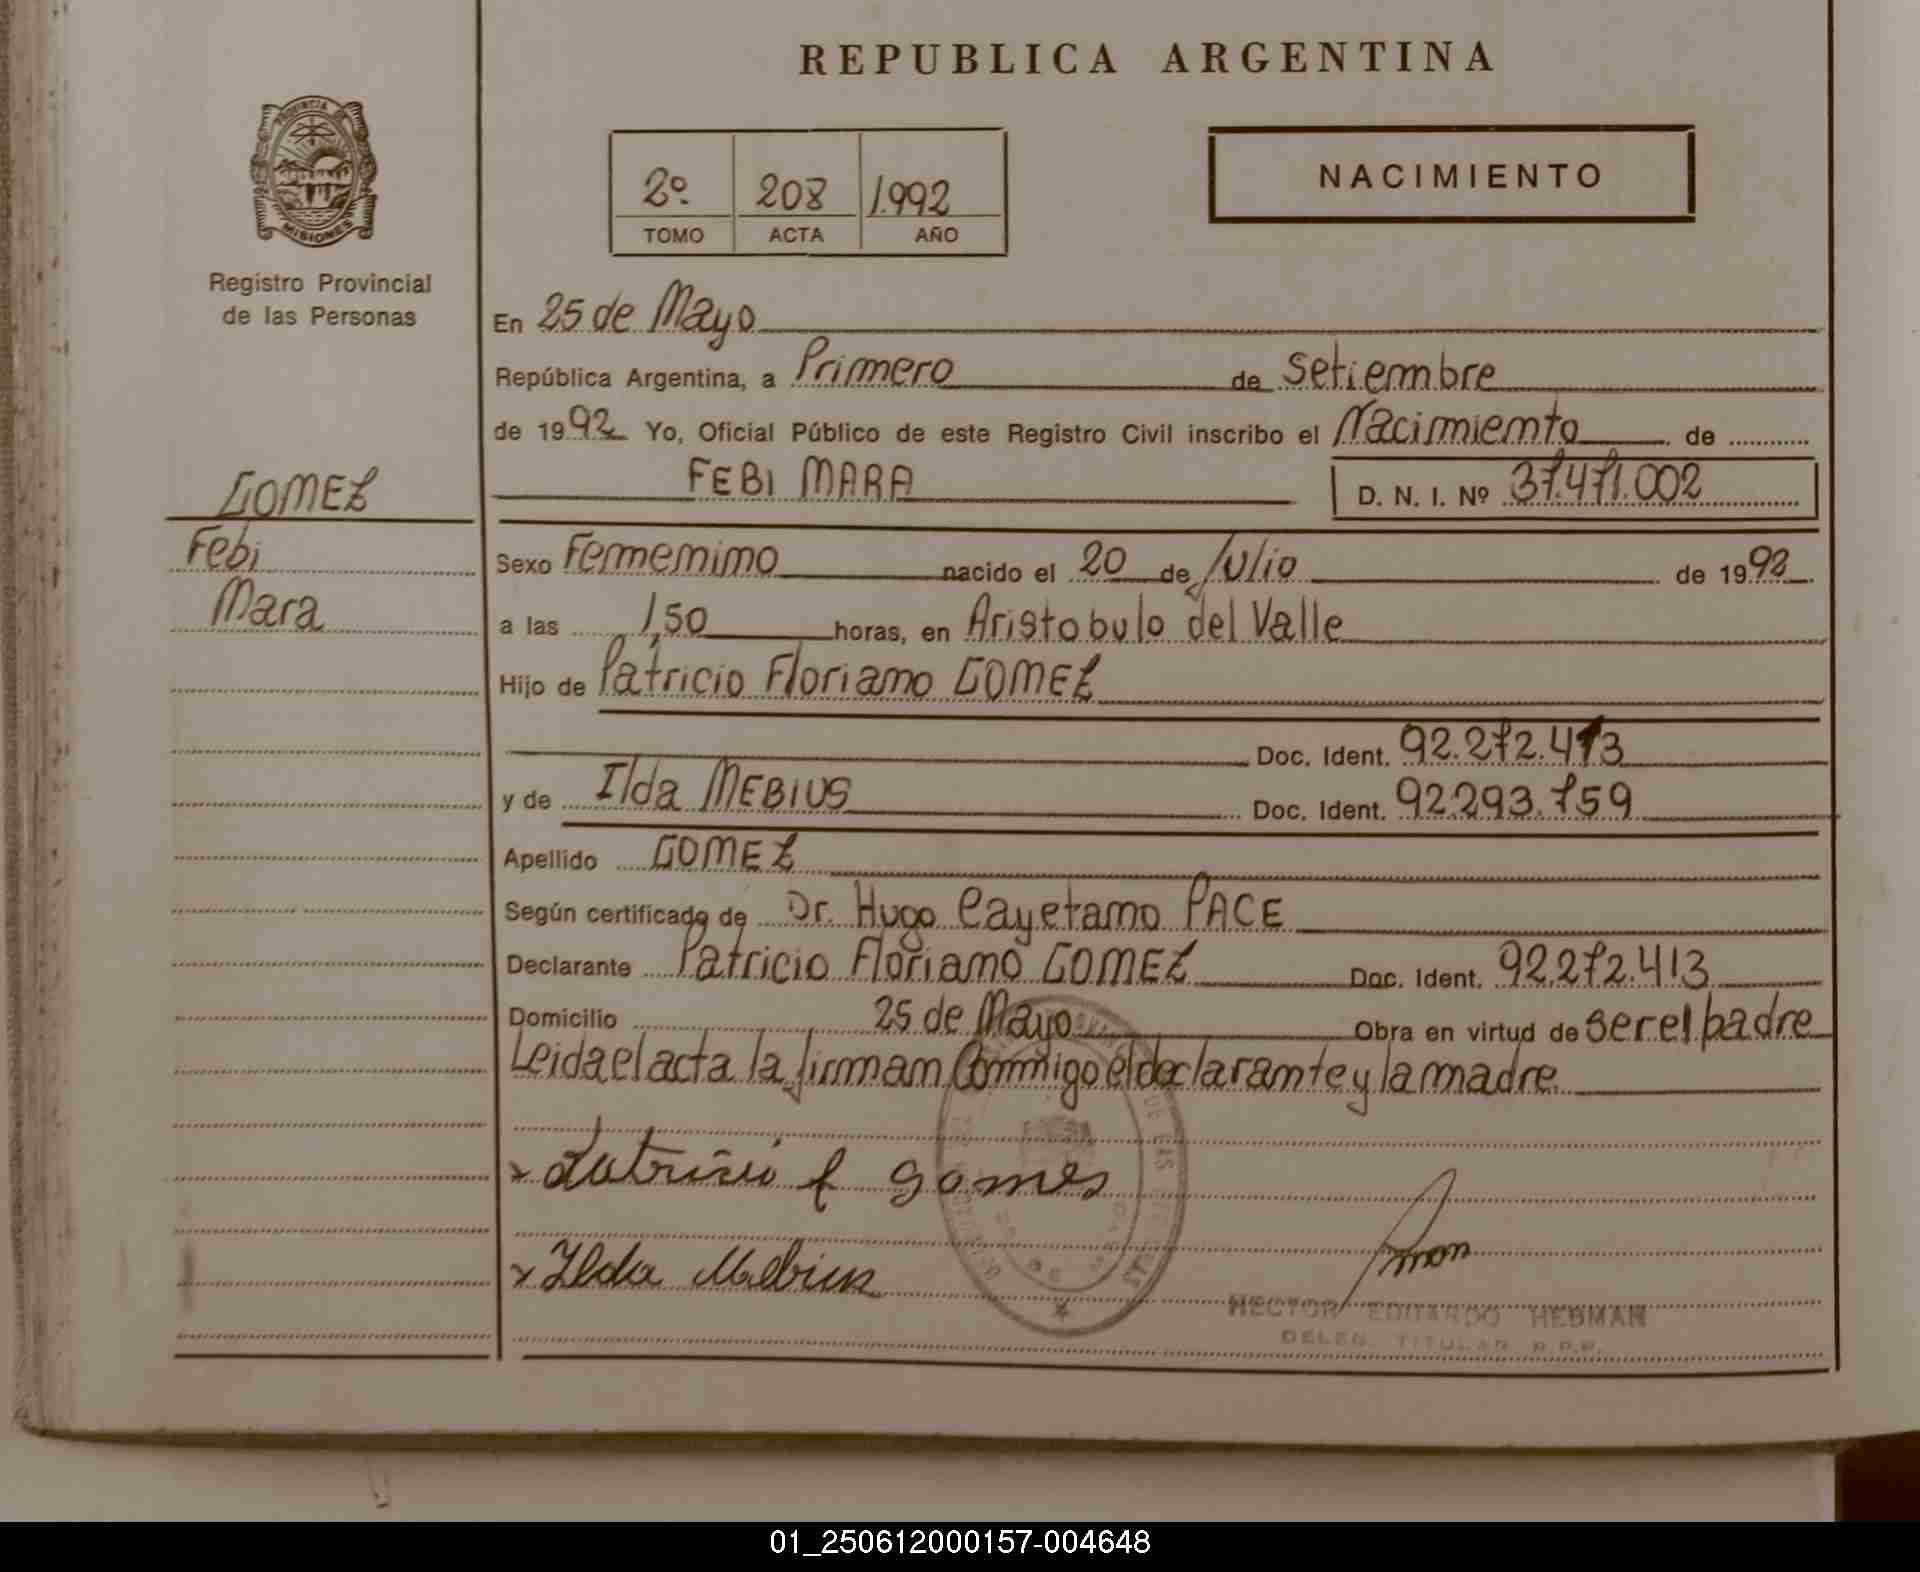 REPUBLICA ARGENTINA
PROVINCIA DE
MISIONES
Registro Provincial
de las Personas
2º 208 1.992
TOMO ACTA AÑO
NACIMIENTO
En 25 de Mayo
República Argentina, a Primero de Setiembre
de 1992 Yo, Oficial Público de este Registro Civil inscribo el Nacimiento de
FEBI MARA D. N. I. Nº 37.471.002
GOMEZ
Febi
Mara
Sexo Femenino nacido el 20 de Julio de 1992
a las 1,50 horas, en Aristobulo del Valle
Hijo de Patricio Floriano GOMEZ
Doc. Ident. 92.272.413
y de Ilda MEBIUS Doc. Ident. 92.293.759
Apellido GOMEZ
Según certificado de Dr. Hugo Cayetano PACE
Declarante Patricio Floriano GOMEZ Doc. Ident. 92.272.413
Domicilio 25 de Mayo Obra en virtud de ser el padre
Leida el acta la firman Conmigo el declarante y la madre
x Patricio f gomes
x Ilda Mebius
HECTOR EDUARDO HEBMAN
DELEG. TITULAR R.P.P.
01_250612000157-004648